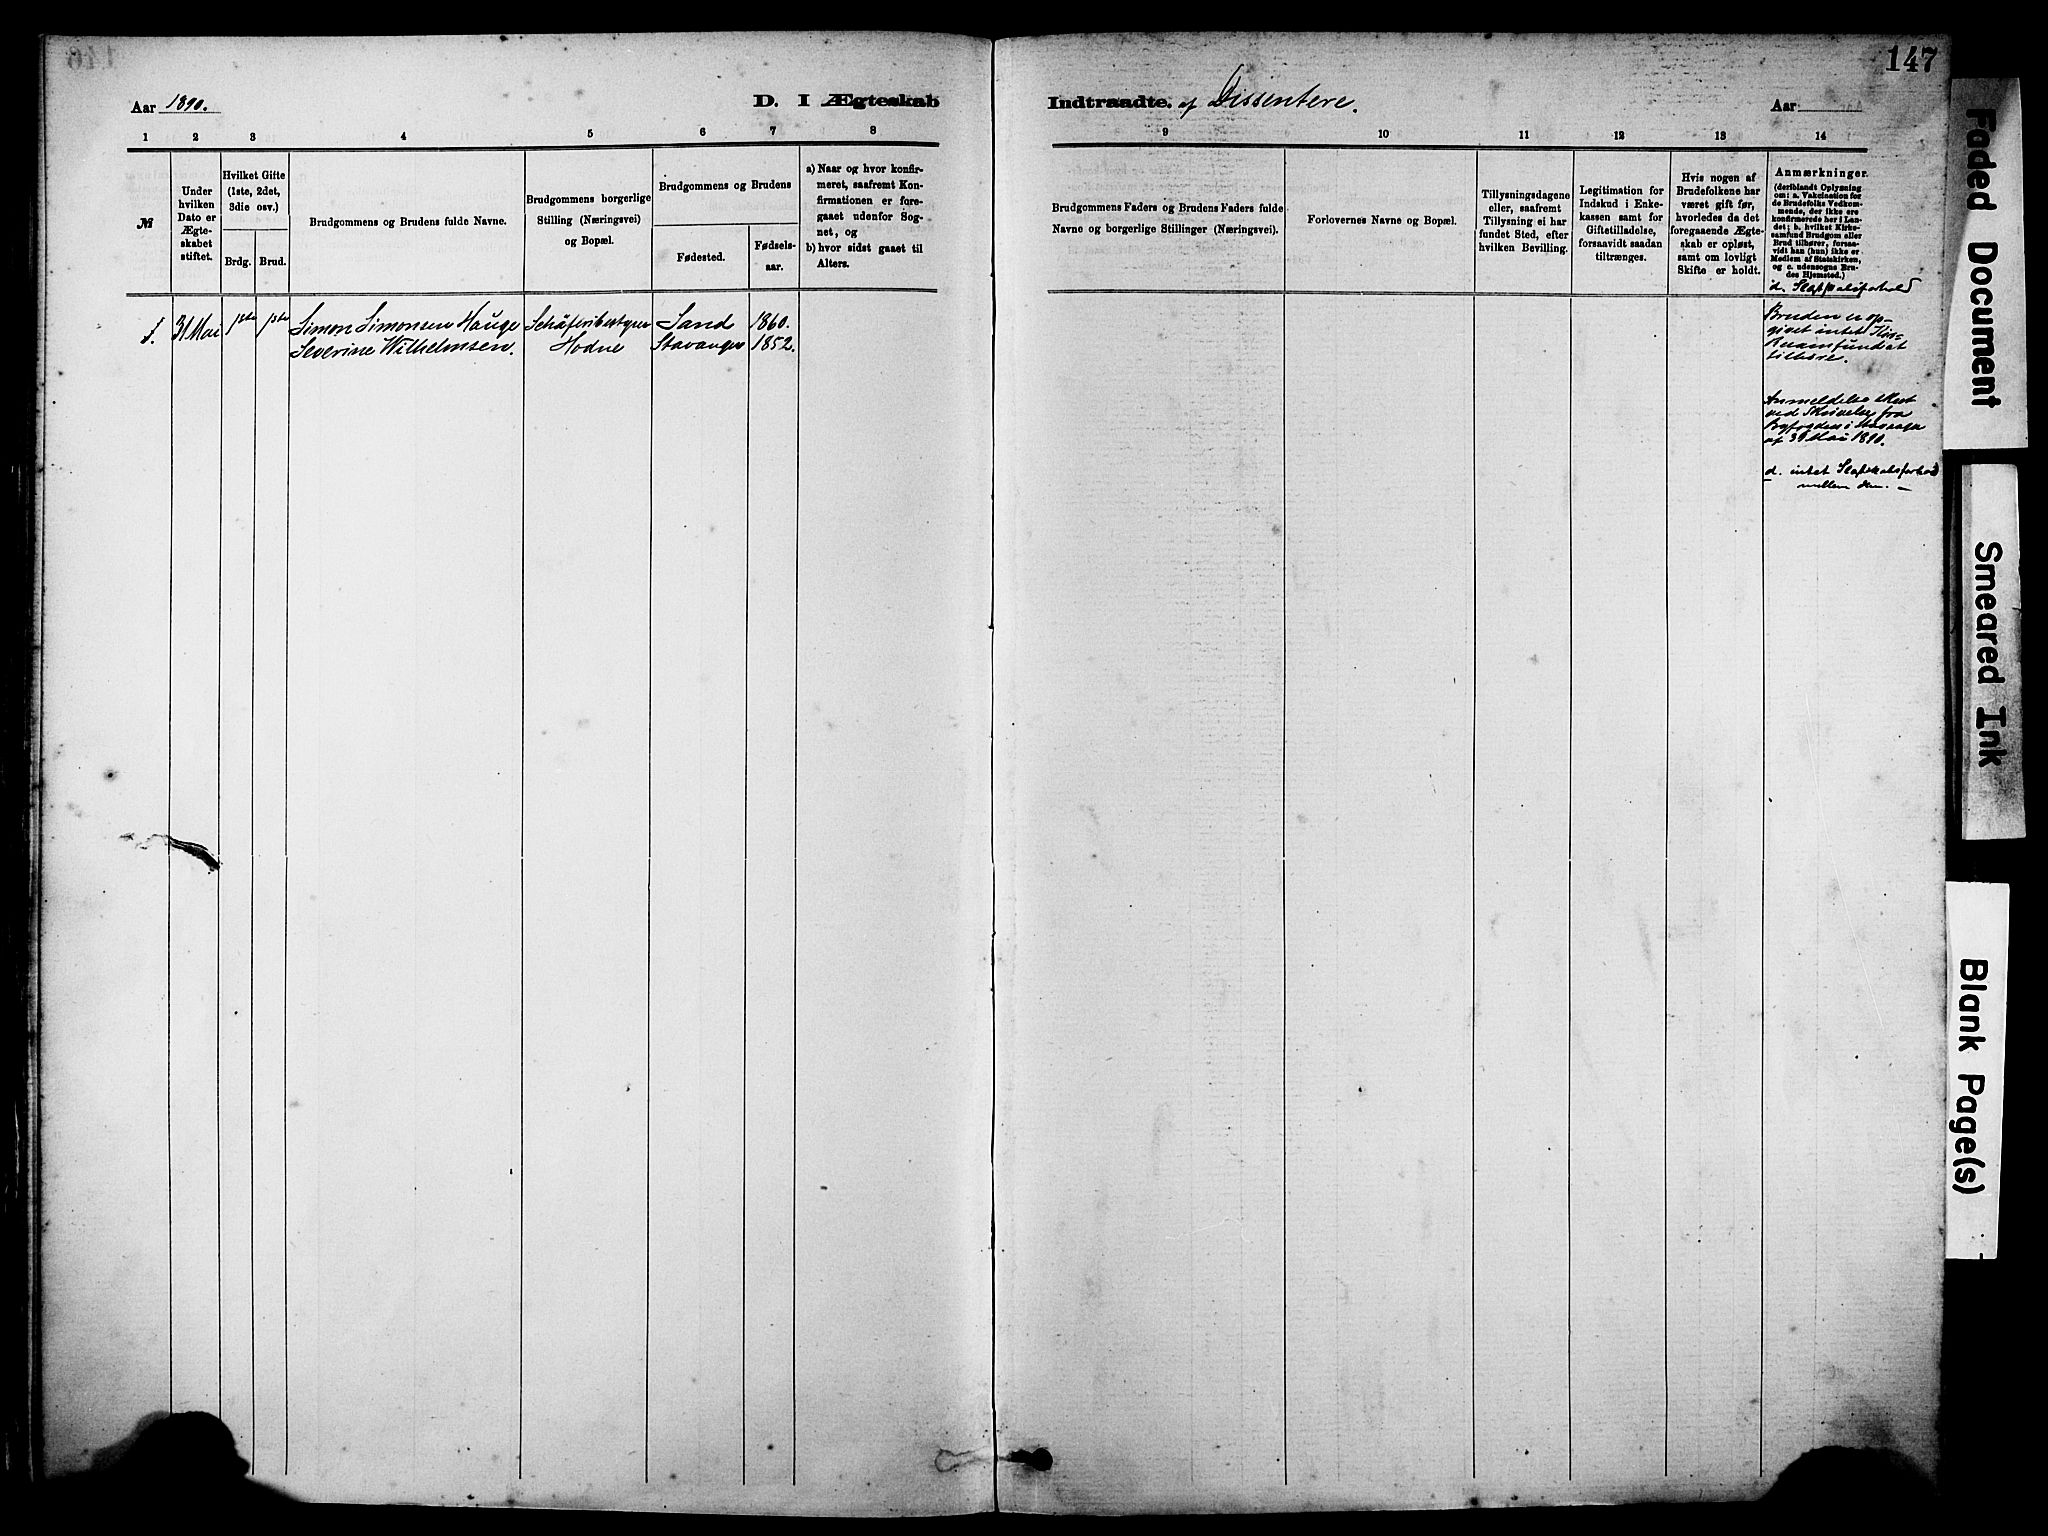 147
Aar 1890.
D. I Ægteskab
Indtraadte. af Dissentere.
Aar
1 2 3 4 5 6 7 8
9 10 11 12 13 14
№
Under
hvilken
Dato er
Ægte-
skabet
stiftet.
Hvilket Gifte
(1ste, 2det,
3die osv.)
Brdg. Brud.
Brudgommens og Brudens fulde Navne.
Brudgommens borgerlige
Stilling (Næringsvei)
og Bopæl.
Brudgommens og Brudens
Fødested.
Fødsels-
aar.
a) Naar og hvor konfir-
meret, saafremt Kon-
firmationen er fore-
gaaet udenfor Sog-
net, og
b) hvor sidst gaaet til
Alters.
Brudgommens Faders og Brudens Faders fulde
Navne og borgerlige Stillinger (Næringsvei).
Forlovernes Navne og Bopæl.
Tillysningsdagene
eller, saafremt
Tillysning ei har
fundet Sted, efter
hvilken Bevilling.
Legitimation for
Indskud i Enke-
kassen samt for
Giftetilladelse,
forsaavidt saadan
tiltrænges.
Hvis nogen af
Brudefolkene har
været gift før,
hvorledes da det
foregaaende Ægte-
skab er opløst,
samt om lovligt
Skifte er holdt.
Anmærkninger.
(deriblandt Oplysning
om: a. Vakcination for
de Brudefolks Vedkom-
mende, der ikke ere
konfirmerede her i Lan-
det; b. hvilket Kirke-
samfund Brudgom eller
Brud tilhører, forsaa-
vidt han (hun) ikke er
Medlem af Statskirken,
og c. udensogns Bru-
des Hjemsted.)
d. Slægtskabsforhold
1. 31 Mai 1ste 1ste Simon Simonsen Hauge Schäferibestyrer Sand 1860.
Severine Wilhelmsen. Hodne Stavanger 1852.
Bruden er op-
givet intet Kir-
kesamfund at
tilhøre.
Anmeldelse skeet
ved Skrivelse fra
Byfogden i Stavanger
af 31 Mai 1890.
d. intet Slægtskabsforhold
mellem dem. —
Faded Document
Smeared Ink
Blank Page(s)